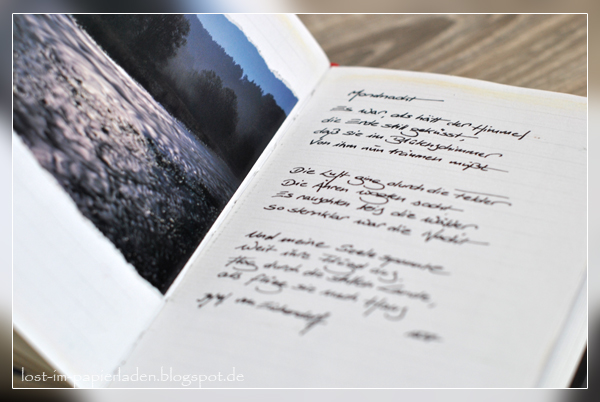 Mondnacht
Es war, als hätt der Himmel
die Erde still geküsst
daß sie im Blütenschimmer
Von ihm nun träumen müßt
Die Luft ging durch die Felder
Die Ähren wogten sacht
Es rauschten leis die Wälder
So sternklar war die Nacht
Und meine Seele spannte
Weit ihre Flügel aus,
Flog durch die stillen Lande,
als flöge sie nach Haus
von Eichendorff
lost-im-papierladen.blogspot.de